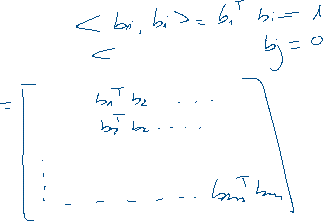 < bi, bi > = bi^T bi = 1
< bj = 0
= [ b1^T b2 . . .
b2^T b2 . . . .
. . . . . . . bm^T bm ]